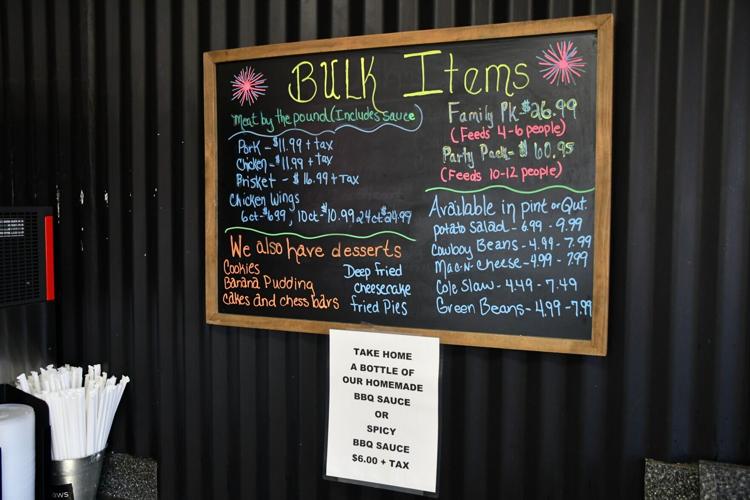 BULK Items
Meat by the pound (Includes sauce)
Pork - $11.99 + tax
Chicken - $11.99 + tax
Brisket - $16.99 + Tax
Chicken Wings
6ct - $6.99, 10ct $10.99 24ct $24.99
We also have desserts
Cookies
Banana Pudding
cakes and chess bars
Deep fried
cheesecake
fried Pies
Family Pk - $26.99
(Feeds 4-6 people)
Party Pack - $60.95
(Feeds 10-12 people)
Available in pint or Qut.
potato salad - 6.99 - 9.99
Cowboy Beans - 4.99 - 7.99
Mac-n-cheese - 4.99 - 7.99
Cole Slaw - 4.49 - 7.49
Green Beans - 4.99 - 7.99
TAKE HOME
A BOTTLE OF
OUR HOMEMADE
BBQ SAUCE
OR
SPICY
BBQ SAUCE
$6.00 + TAX